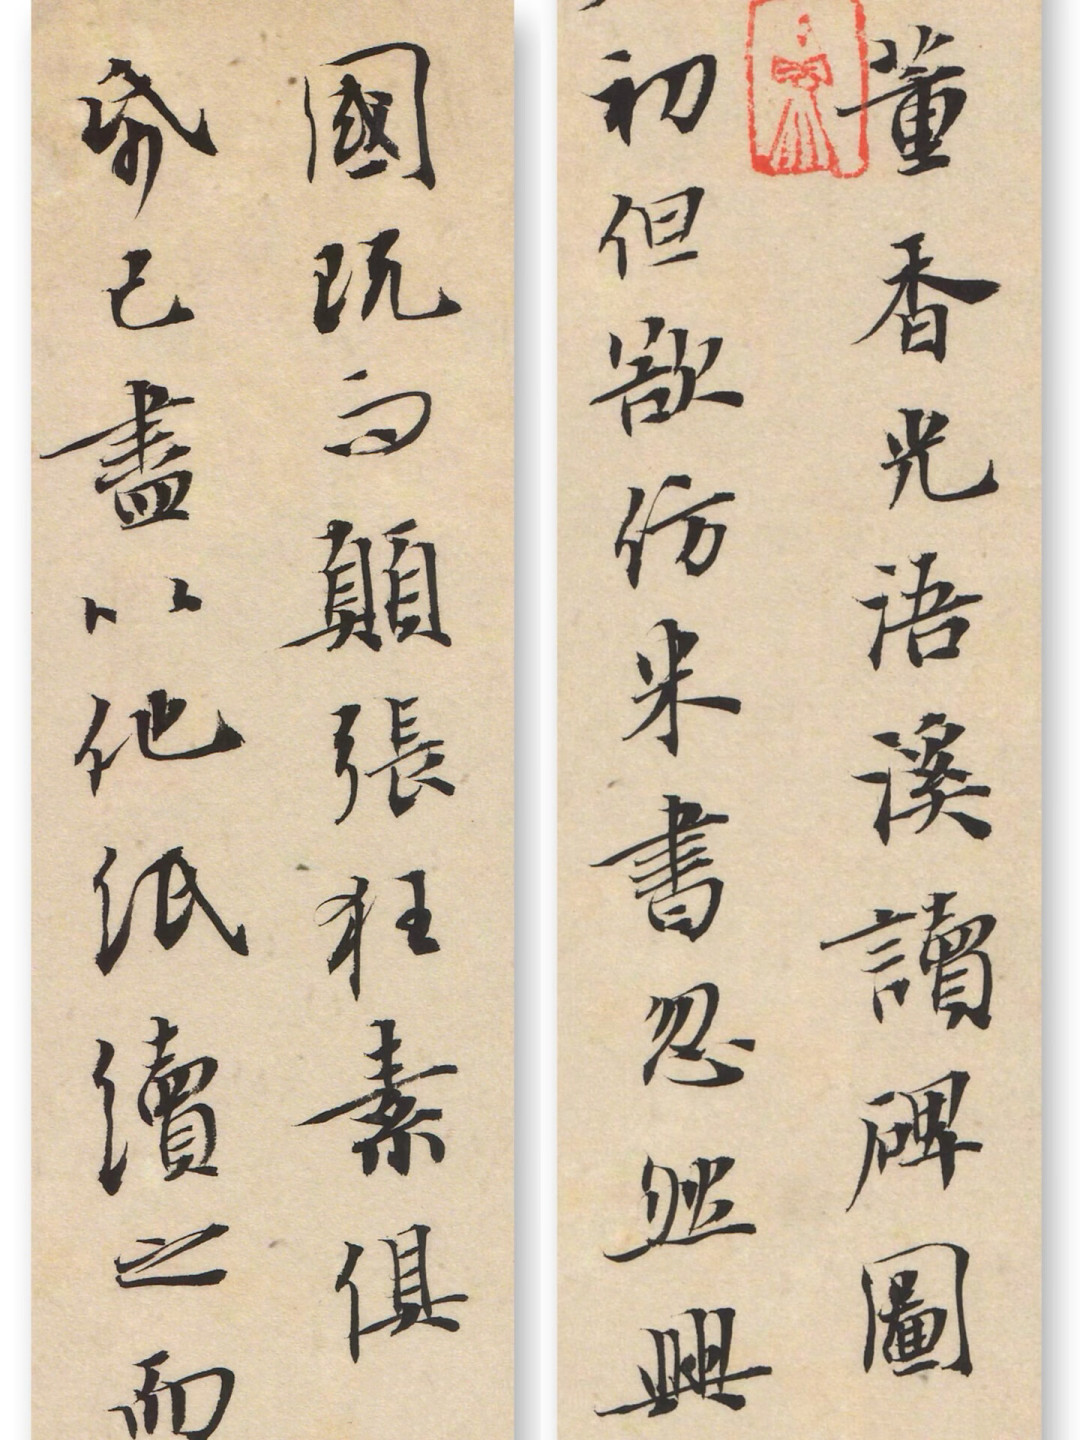 董香光語溪讀碑圖
初但欲仿米書忽然興
既而顛張狂素俱
帋已盡以他紙續之而